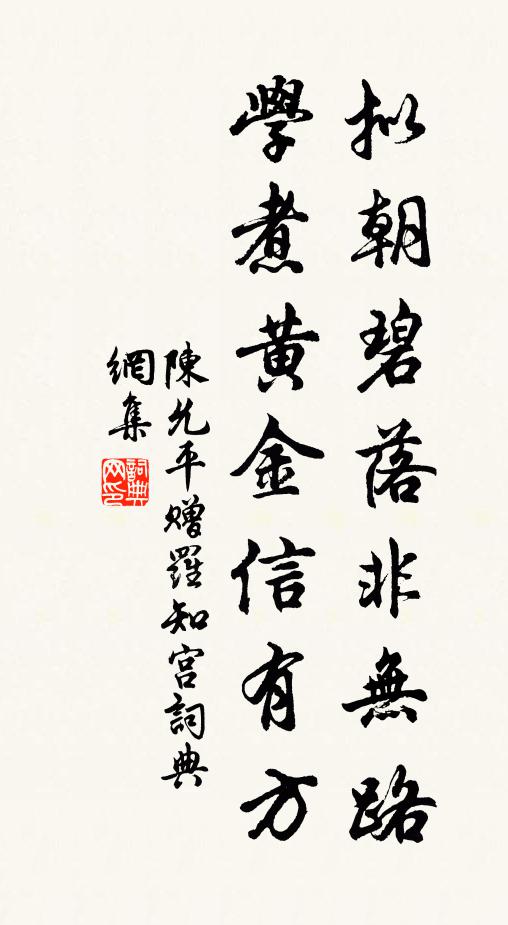 拟朝碧落非無路
學煮黄金信有方
陳允平贈羅知宫詞典
網集
詞典网印